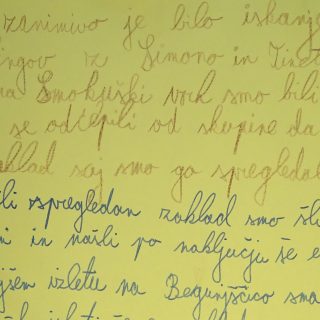 zanimivo je bilo iskanje
ingov iz Simono in Tinet
na Smokuški vrh smo bili
se odcepili od skupine da
aklad saj smo ga spregledal
ili spregledan zaklad smo šl
ni in našli po naključju še e
jšem izletu na Begunjščico sma